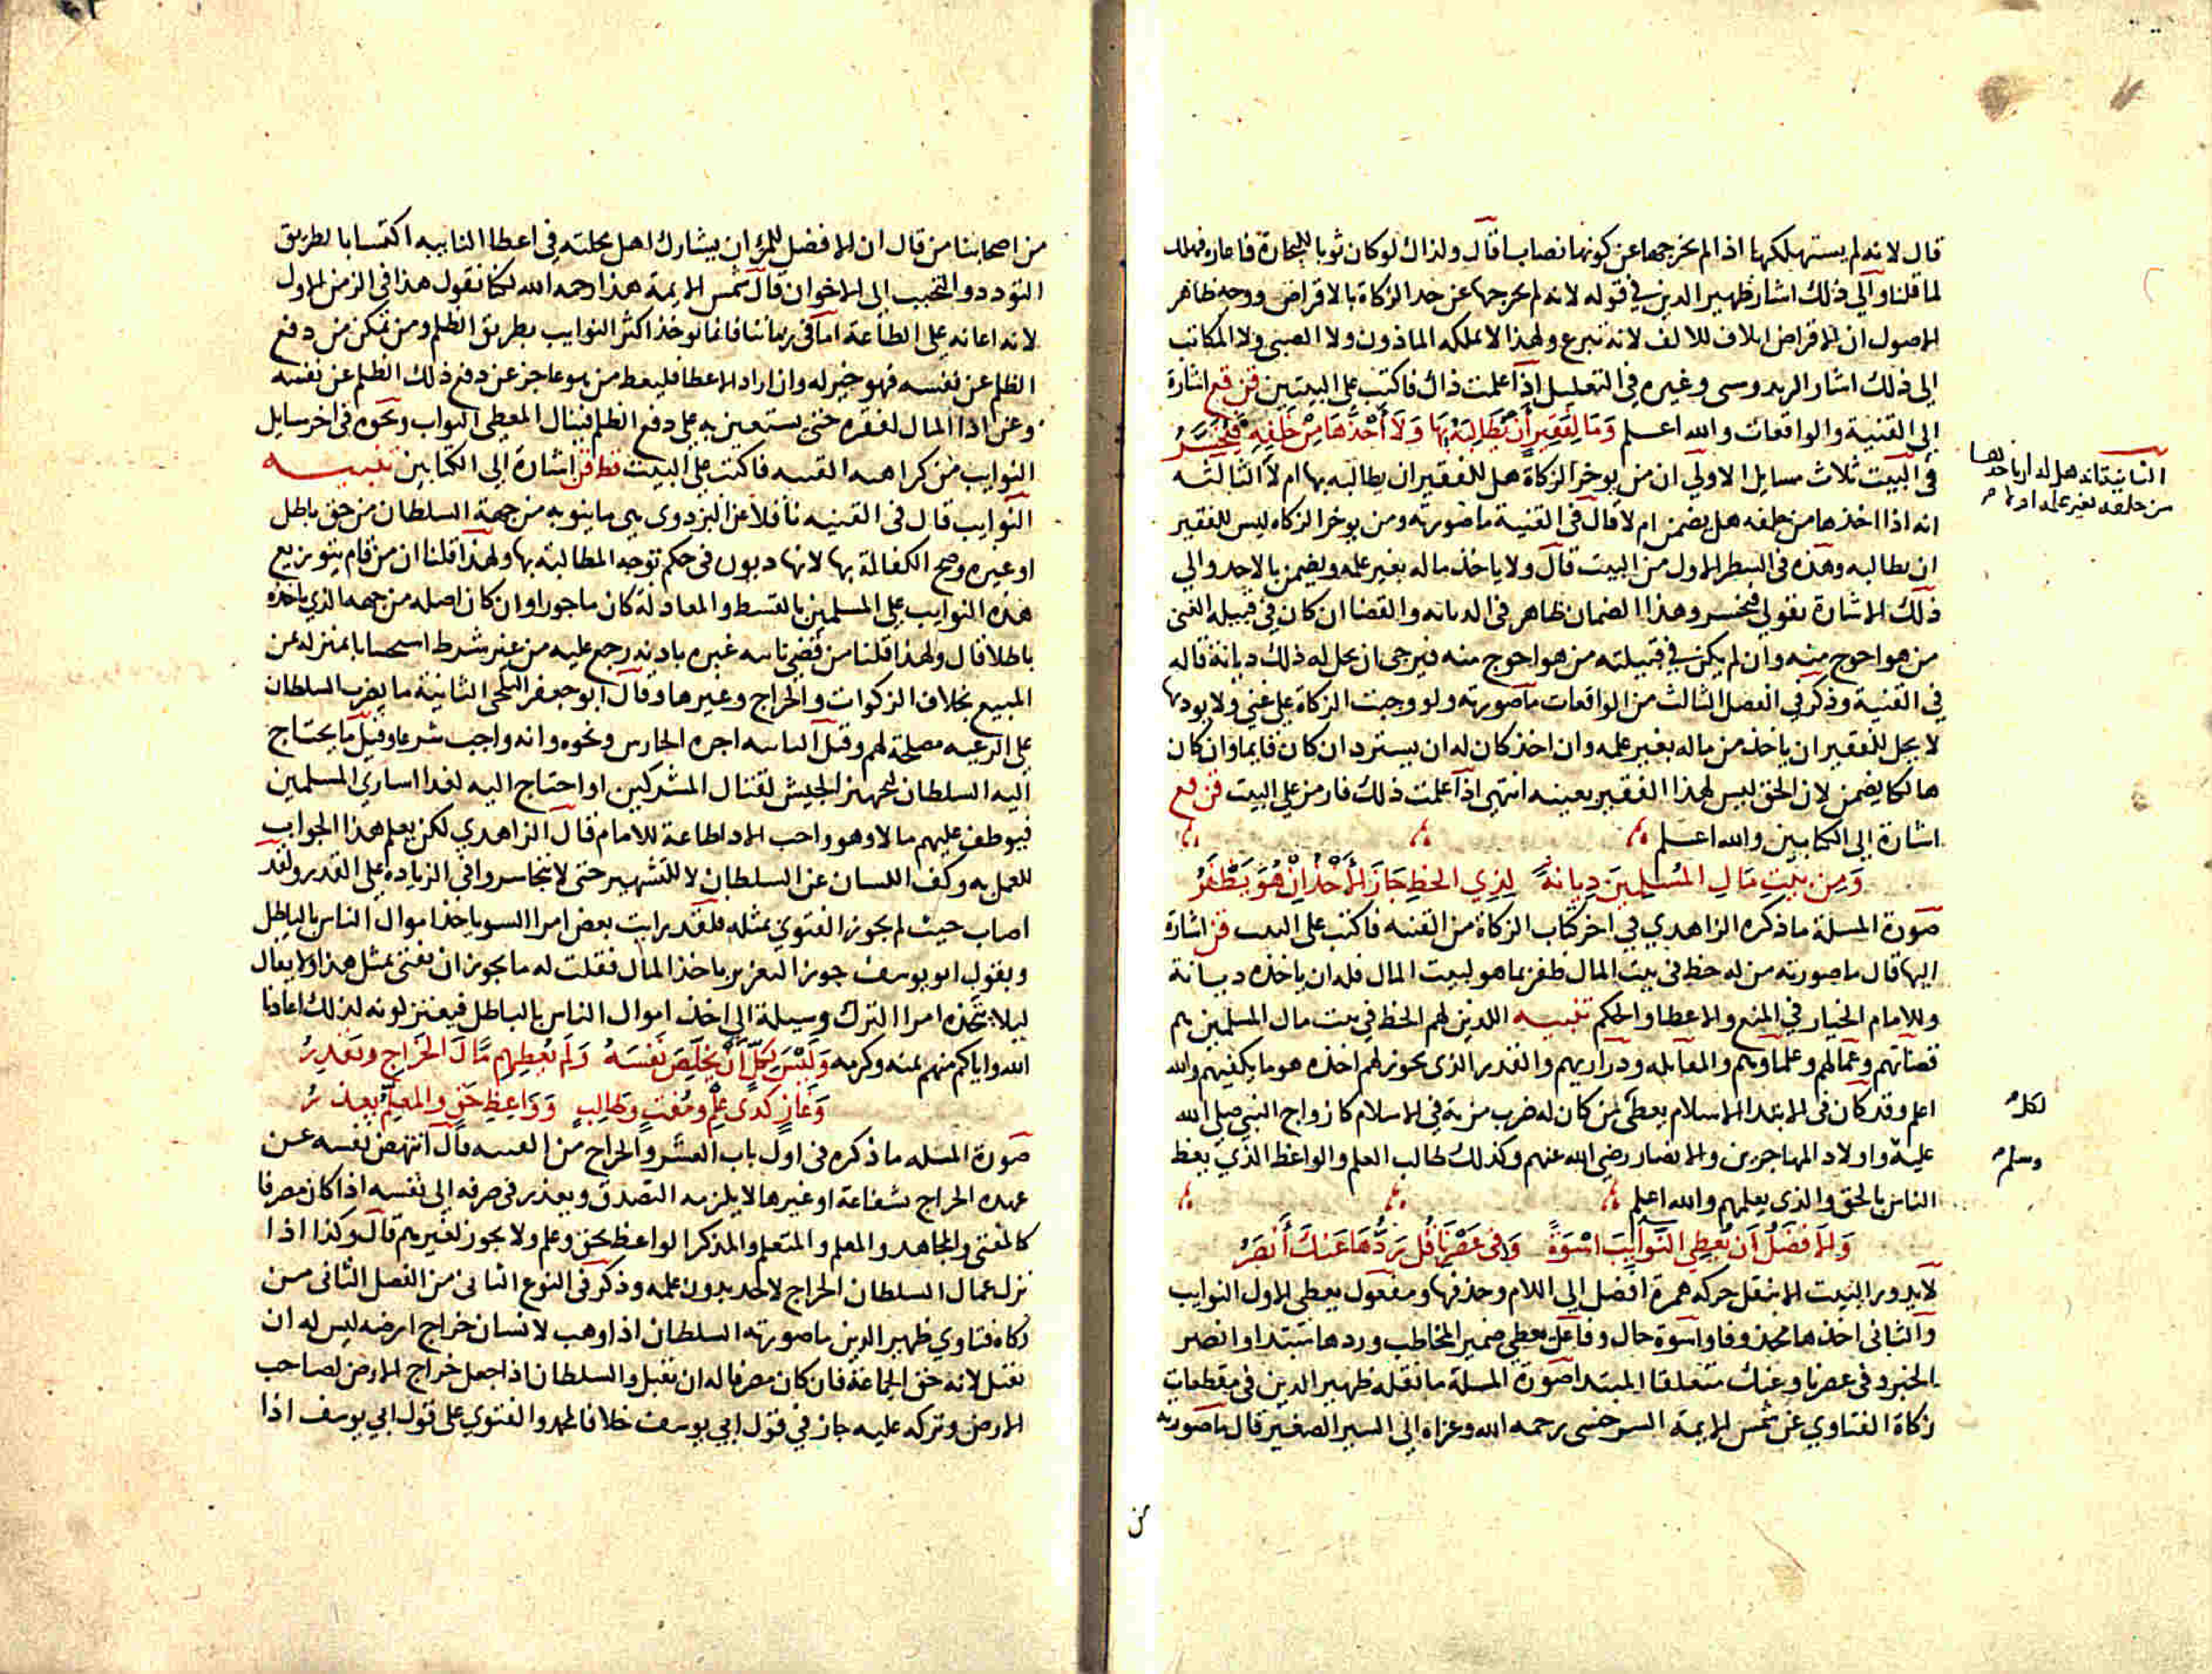 قال لانه لم يستهلكها اذا لم يخرجها عن كونها نصابا قال ولذاك لو كان ثوبا للتجارة فاعاره فهلك
لما قلنا والى ذلك اشار ظهير الدين في قوله لانه لم يخرجها عن حد الزكاة بالاقراض ووجه ظاهر
الاصول ان الاقراض اتلاف للالف لانه تبرع ولهذا لا يملكه الماذون ولا الصبي ولا المكاتب
الى ذلك اشار البزدوى وغيره في التعليل اذا علمت ذاك فاكتب على البيتين قن قع اشارة
الى القنية والواقعات والله اعلم وَمَا لِفَقيرٍ أَنْ يُطَالِبَهُ بِهَا وَلَا أَخْذُهَا مِنْ خَلْفِهِ فَيُخَسَّرُ
في البيت ثلاث مسايل الاولى ان من يوخر الزكاة هل للفقير ان يطالبه بها ام لا الثالثه
الثانية انه هل له ان ياخذها
من خلفه بغير علمه او لا
انه اذا اخذها من خلفه هل يضمن ام لا قال في القنية ما صورته ومن يوخر الزكاه ليس للفقير
ان يطالبه وهذه في الشطر الاول من البيت قال ولا ياخذ ماله بغير علمه ويضمن بالاخذ والى
ذلك الاشارة بقولي فيخسر وهذا الضمان ظاهر في الديانه والقضا ان كان في قبيله الغني
من هو احوج منه وان لم يكن في قبيلته من هو احوج منه فيرجى ان يحل له ذلك ديانة قاله
في القنية وذكر في الفصل الثالث من الواقعات ما صورته ولو وجبت الزكاة على غني ولا يوديها
لا يحل للفقير ان ياخذ من ماله بغير علمه وان اخذ كان له ان يسترد ان كان قايما وان كان
هالكا يضمن لان الحق ليس لهذا الفقير بعينه انتهى اذا علمت ذلك فارمز على البيت قن قع
اشارة الى الكتابين والله اعلم
وَمِن بَيْتِ مَالِ المُسْلِمِينَ دِيَانَةً لِذِي الحَظِّ جَازَ الأَخْذُ إِنْ هُوَ يَظْفَرُ
صورة المسلة ما ذكره الزاهدي في اخر كتاب الزكاة من القنيه فاكتب على البيت قن اشارة
اليها قال ما صورته من له حظ في بيت المال ظفر بما هو لبيت المال فله ان ياخذه ديانة
وللامام الخيار في المنع والاعطا والحكم تنبيه اللذين لهم الحظ في بيت مال المسلمين هم
قضاتهم وعمالهم وعلماوهم والمقاتله وذراريهم والقدر الذي يجوز لهم اخذه هو ما يكفيهم والله
اعلم وقد كان في الابتدا الاسلام يعطى لمن كان له ضرب مزية في الاسلام كازواج النبي صلى الله
لكل
عليه واولاد المهاجرين والانصار رضي الله عنهم وكذلك طالب العلم والواعظ الذي يعظ
وسلم
الناس بالحق والذي يعلمهم والله اعلم
وَالأَفْضَلُ أَنْ تُعْطِي النَّوَايِبَ اسْوَةً وَفي عَصْرِنَا قُل رَدُّهَا عَنكَ أَنْصَرُ
لا يدور البيت الا بنقل حركه همزة افضل الى اللام وحذفها ومفعول يعطى الاول النوايب
والثاني اخذها محذوفا واسوة حال وفاعل يعطي ضمير المخاطب وردها مبتدا وانصر
الخبر وفي عصرنا وعنك متعلقا المبتدا صورة المسلة ما نقله ظهير الدين في مقطعات
زكاة الفتاوي عن شمس الايمة السرخسي رحمه الله وعزاه الى السير الصغير قال ما صورته
من
من اصحابنا من قال ان الافضل للمرء ان يشارك اهل محلته في اعطا النايبه اكتسابا بطريق
التودد والتحبب الى الاخوان قال شمس الايمة هذا رحمه الله لكنا نقول هذا في الزمن الاول
لانه اعانه على الطاعة اما في زماننا فانما توخذ اكثر النوايب بطريق الظلم ومن تمكن من دفع
الظلم عن نفسه فهو خير له وان اراد الاعطا فليعط من هو عاجز عن دفع ذلك الظلم عن نفسه
وعن اذا المال لفقره حتى يستعين به على دفع الظلم فينال المعطي الثواب ونحوه في اخر سايل
النوايب من كراهيه القنيه فاكتب على البيت قظ قن اشارة الى الكتابين تنبيه
النوايب قال في القنيه ناقلا عن البزدوى هي ما ينوبه من جهة السلطان من حق باطل
او غيره وصح الكفالة بها لانها ديون في حكم توجه المطالبة بها ولهذا قلنا ان من قام بتوزيع
هذه النوايب على المسلمين بالقسط والمعادلة كان ماجورا وان كان اصله من جهه الذي ياخذه
باطلا قال ولهذا قلنا من قضى نايبه غيره باذنه رجع عليه من غير شرط استحسانا بمنزله ثمن
المبيع بخلاف الزكوات والخراج وغيرها وقال ابو جعفر البلخي الثانية ما يضرب السلطان
على الرعيه مصلحة لهم وقيل النايبه اجره الحارس ونحوه وانه واجب شرعا وقيل ما يحتاج
اليه السلطان لتجهيز الجيش لقتال المشركين او احتاج اليه لفدا اساري المسلمين
فيوظف عليهم مالا وهو واجب الادا طاعة للامام قال الزاهدي لكن يعلم هذا الجواب
للعمل به وكف اللسان عن السلطان لا للتشهير حتى لا يتجاسروا في الزيادة على القدر ولقد
اصاب حيث لم يجوز الفتوي بمثله فلقد رايت بعض امرا السو ياخذ اموال الناس بالباطل
ويقول ابو يوسف جوز التعزير باخذ المال فقلت له ما يجوز ان يفتى بمثل هذا ولا يقال
ليلا يتخذه امرا الترك وسيلة الى اخذ اموال الناس بالباطل فيعتزلونه لذلك اعاذنا
الله واياكم منهم بمنه وكرمه وَلَيْسَ لِكُلٍّ أَنْ يُخَلِّصَ نَفْسَهُ وَلَمْ يُعْطِهِم مَّالَ الخَرَاجِ وتعذرُ
وَغَازٍ كذى عِلْمٍ ومُفتٍ وَطالِبٍ وَوَاعِظِ حَقٍّ والمعلّم يعذرُ
صورة المسله ما ذكره في اول باب العشر والخراج من القنيه قال انتهض نفسه عن
عهده الخراج بشفاعة او غيرها لا يلزمه التصدق ويعذر في صرفه الى نفسه اذا كان مصرفا
كالمفتي والمجاهد والمعلم والمتعلم والمذكر الواعظ بحق وعلم ولا يجوز لغيرهم قال وكذا اذا
نزل عمال السلطان الخراج لاحد بدون علمه وذكر في النوع الثاني من الفصل الثاني من
زكاه فتاوي ظهير الدين ما صورته السلطان اذا وهب لانسان خراج ارضه ليس له ان
يقبل لانه حق الجماعة فان كان مصرفا له ان يقبل والسلطان اذا جعل خراج الارض لصاحب
الارض وتركه عليه جاز في قول ابي يوسف خلافا لمحمد والفتوي على قول ابي يوسف اذا